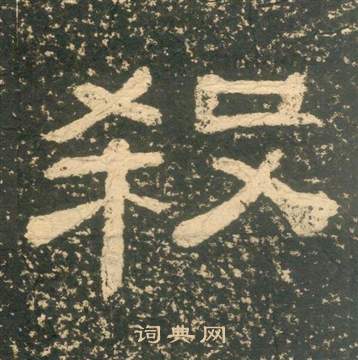 殺
词典网